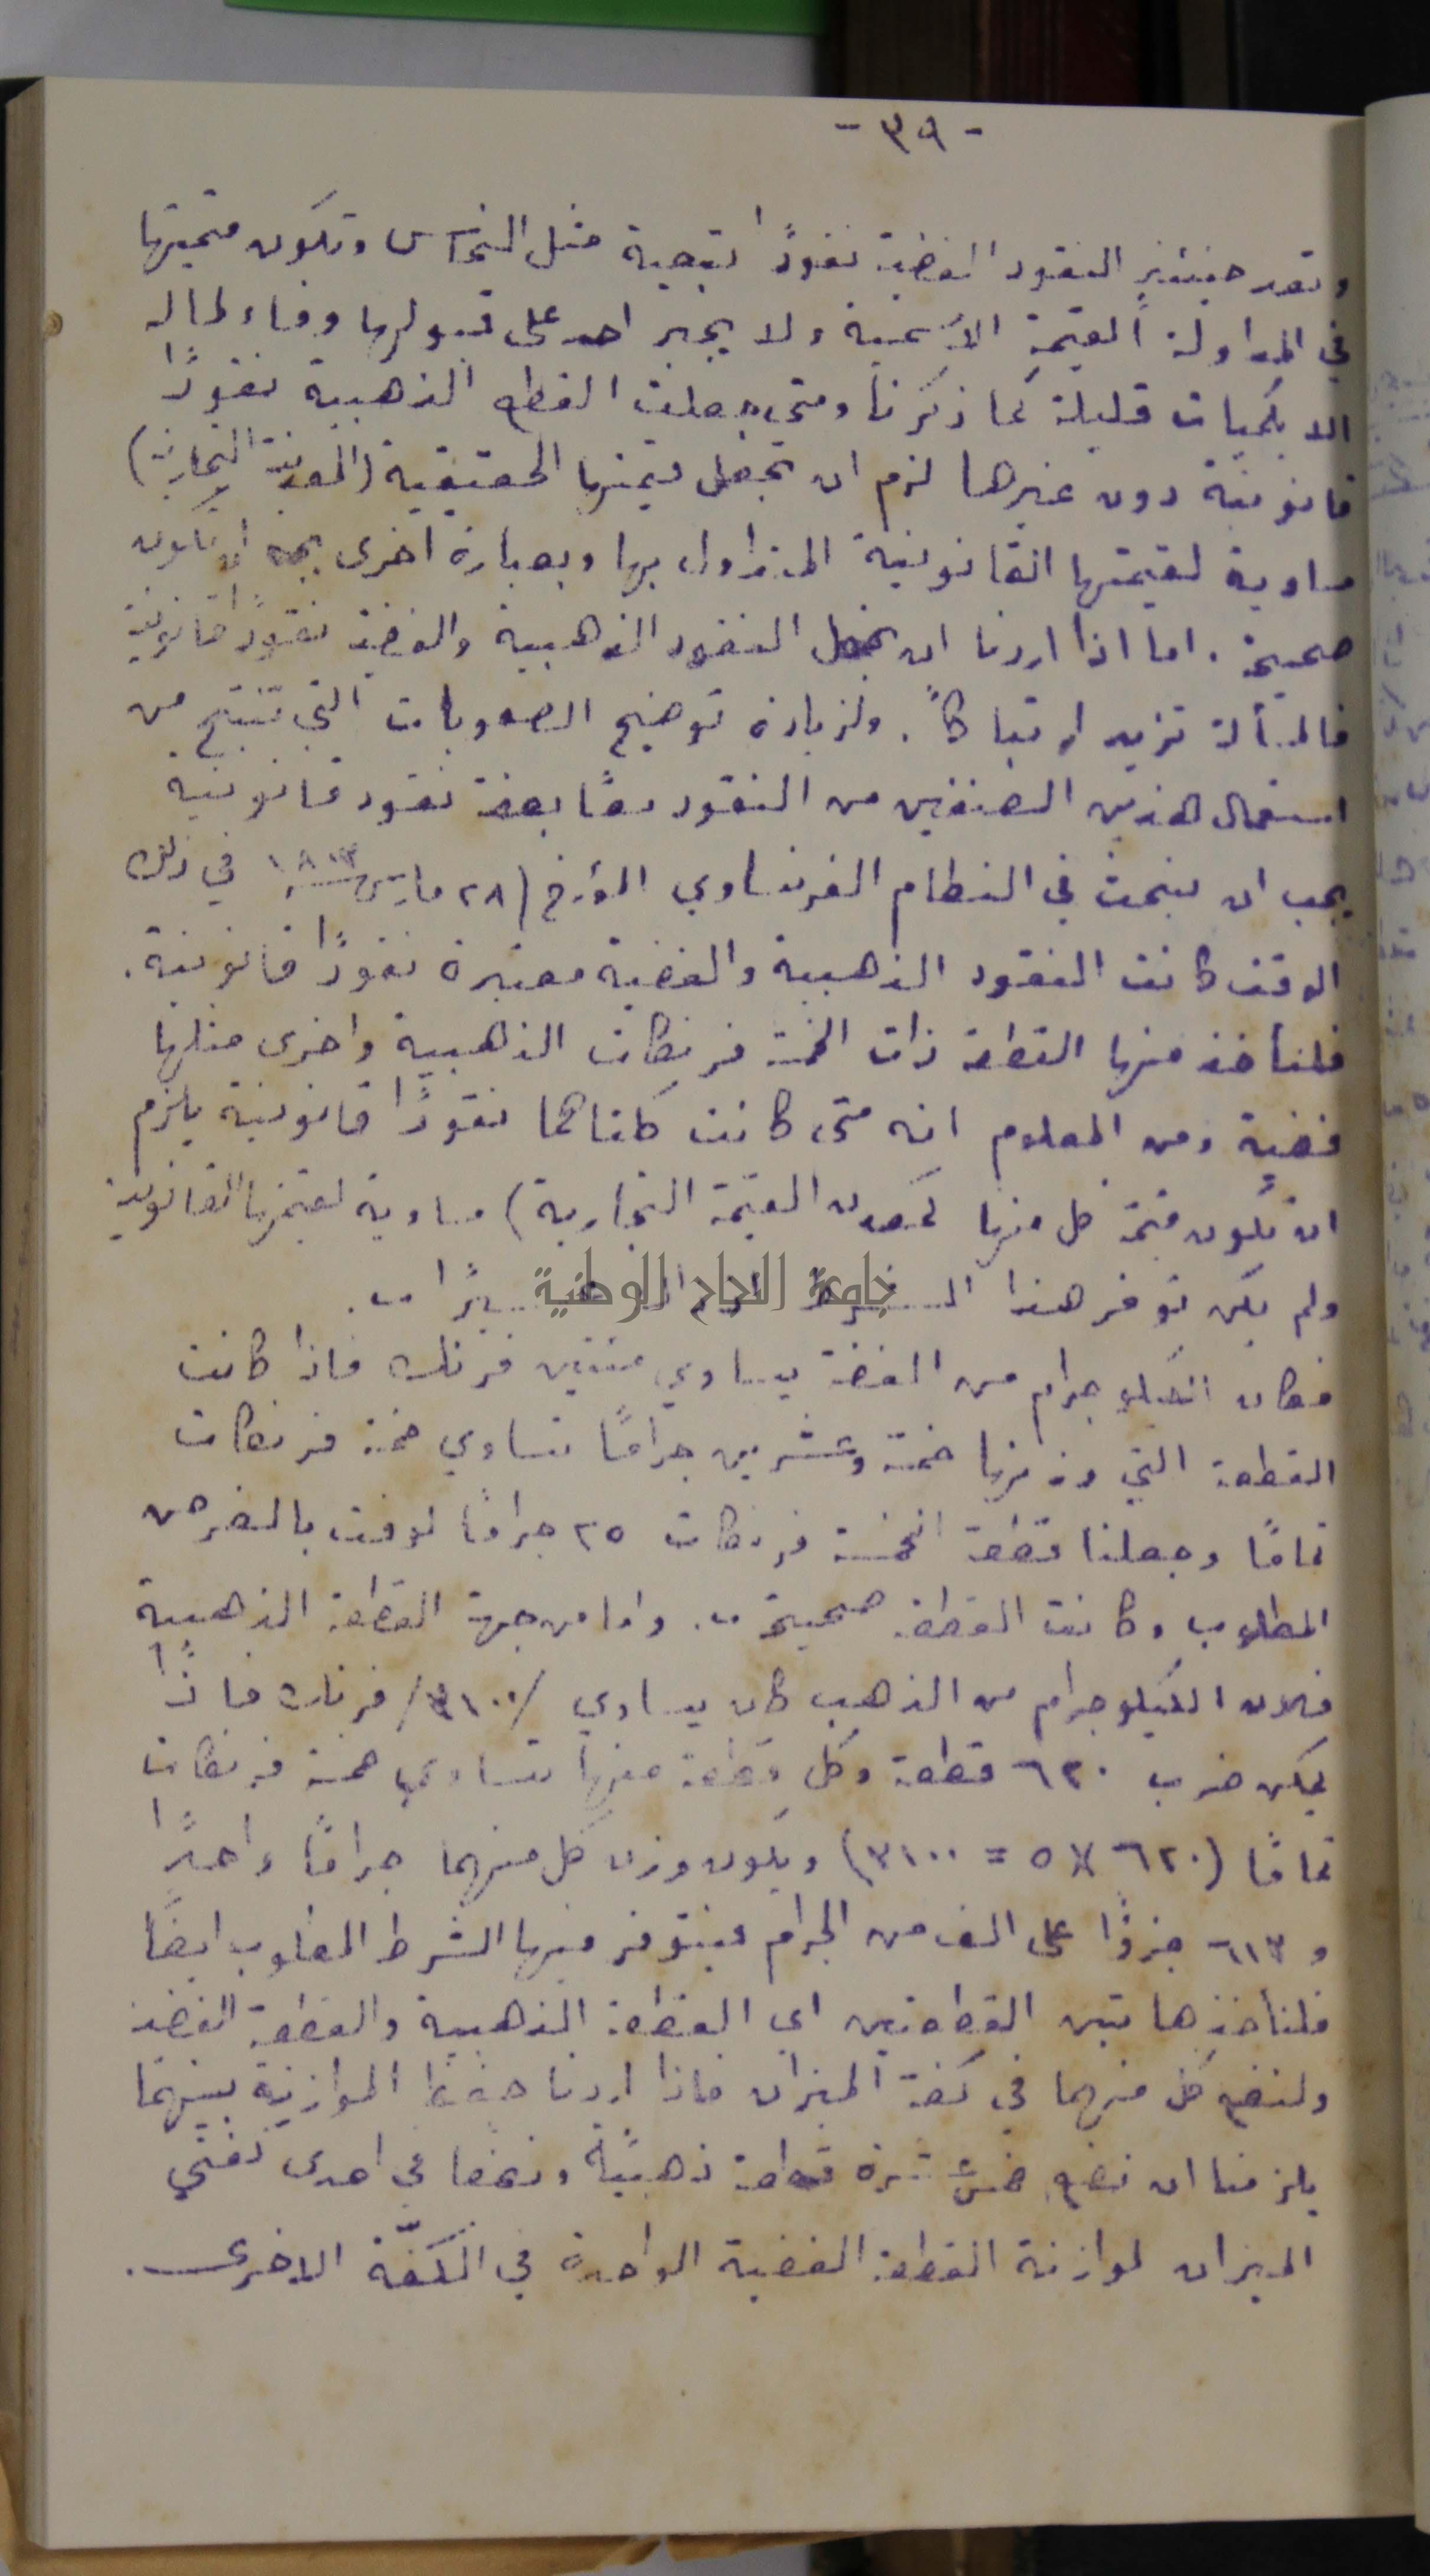 - ٣٩ -
وتعد حينئذٍ النقود الفضية نقودًا تبعية مثل النحاس وتكون قيمتها
في المداولة القيمة الاسمية ولا يجبر احد على قبولها وفاء لماله
الا بكميات قليلة كما ذكرنا ومتى جعلت القطع الذهبية نقودًا
قانونية دون غيرها لزم ان تجعل قيمتها الحقيقية (المعدنية التجارية)
مساوية لقيمتها القانونية المتداول بها وبعبارة اخرى يجب ان تكون
صحيحة . اما اذا اردنا ان نجعل النقود الذهبية والفضية نقودًا قانونية
فالمسألة تزيد ارتباكاً . ولزيادة توضيح الصعوبات التي تنتج من
استعمال هذين الصنفين من النقود معًا بصفة نقود قانونية
يجب ان نبحث في النظام الفرنساوي المؤرخ (٢٨ مارس في ذلك
الوقت كانت النقود الذهبية والفضية معتبرة نقودًا قانونية .
فلنأخذ منها القطعة ذات الخمسة فرنكات الذهبية واخرى مثلها
فضية ومن المعلوم انه متى كانت كلتاهما نقودًا قانونية يلزم
ان تكون قيمة كل منها كمعدن القيمة التجارية) مساوية لقيمتها القانونية
ولم يكن توفر هذا الشرط
جامعة النجاح الوطنية
فكان الكيلوجرام من الفضة يساوي مئتين فرنك فاذا كانت
القطعة التي وزنها خمسة وعشرين جرامًا تساوي خمسة فرنكات
تمامًا وجعلنا قطعة الخمسة فرنكات ٢٥ جرامًا لوفت بالغرض
المطلوب وكانت القطعة صحيحة . واما من جهة القطعة الذهبية
فلان الكيلوجرام من الذهب كان يساوي /٣١٠٠/ فرنك فاذًا
يمكن ضرب ٦٢٠ قطعة وكل قطعة منها تساوي خمسة فرنكات
تمامًا (٦٢٠ × ٥ = ٣١٠٠) ويكون وزن كل منهما جرامًا واحدًا
و ٦١٣ جزؤًا على الف من الجرام فيتوفر فيها الشرط المطلوب ايضًا
فلنأخذ هاتين القطعتين اي القطعة الذهبية والقطعة الفضية
ولنضع كل منهما في كفة الميزان فاذا اردنا حفظ الموازنة بينهما
يلزمنا ان نضع خمس عشرة قطعة ذهبية ونصفا في احدى كفتي
الميزان لموازنة القطعة الفضية الواحدة في الكفّة الاخرى .